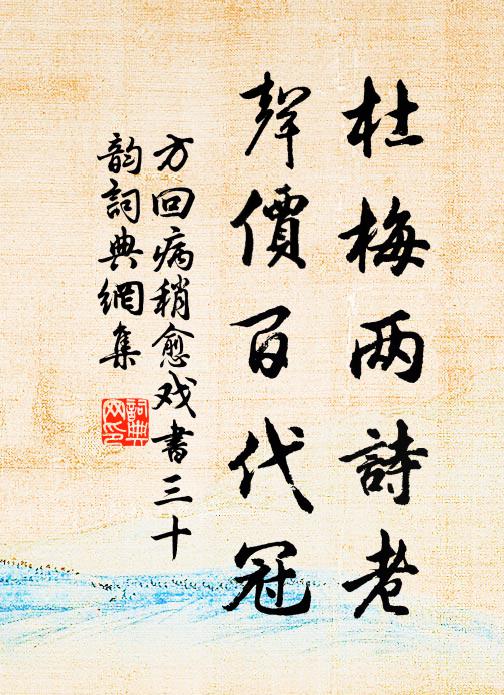 杜梅两詩老
聲價百代冠
方回病稍愈戏書三十
韵詞典網集
詞典